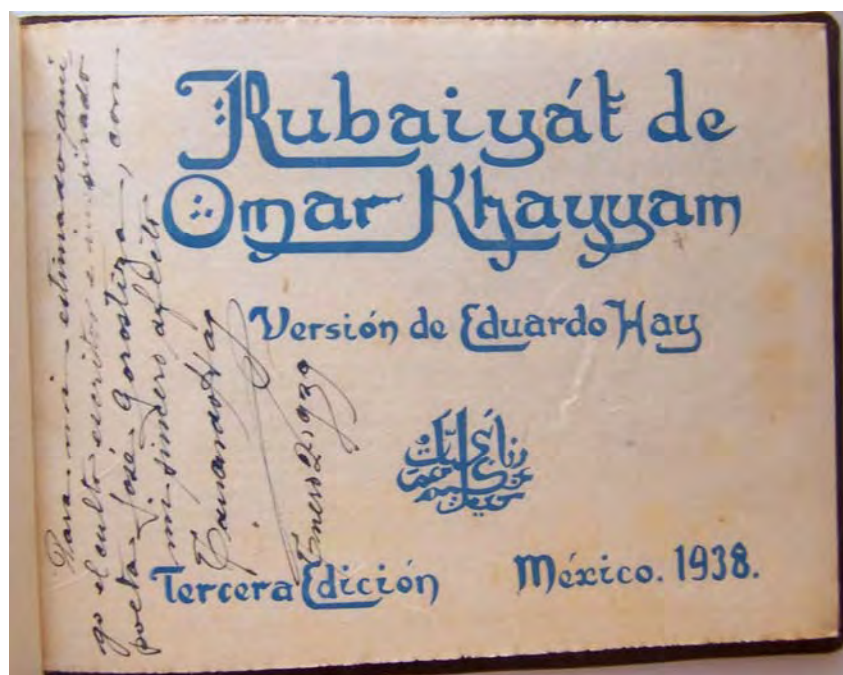 Rubaiyát de
Omar Khayyam
Versión de Eduardo Hay
Tercera Edición México. 1938.
Para mi estimado ami
go el culto escritor e inspirado
poeta José Gorostiza, con
mi sincero afecto
Eduardo Hay
Enero 2. 1939